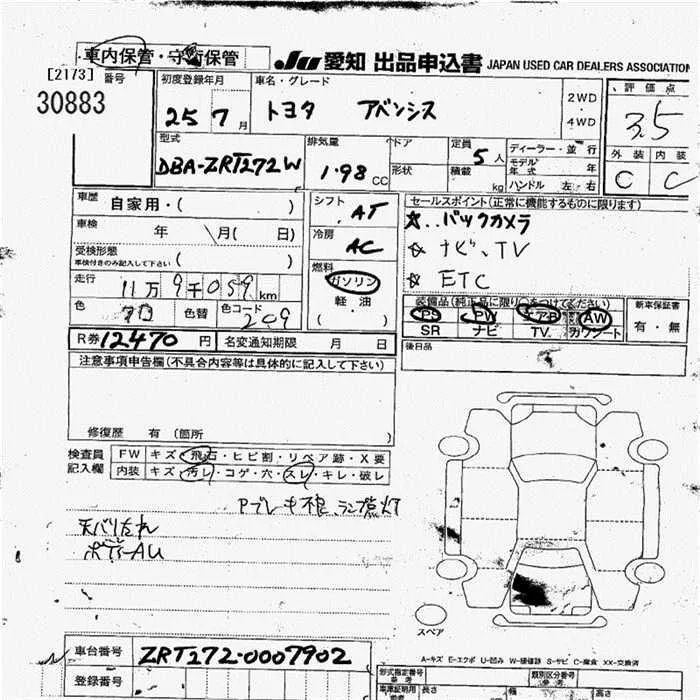 車内保管・守衛保管
JU 愛知 出品申込書 JAPAN USED CAR DEALERS ASSOCIATION
[2173] 番号
30883
初度登録年月 25 7 月
車名・グレード トヨタ アベンシス
2WD・4WD
評価点 3.5
外装 内装
C C
型式 DBA-ZRT272W
排気量 1.98 CC
ドア
形状
定員 5 人
積載 kg
ディーラー・並行
モデル年式 年
ハンドル 左・右
車歴 自家用・( )
車検 年 月( 日)
受検形態 ( )
車検付きのみ記入して下さい
走行 11万9千059km
色 クロ 色替 色コード 209
シフト AT
冷房 AC
燃料 ガソリン
軽油
( )
セールスポイント(正常に機能するものに限ります)
☆..バックカメラ
☆ ナビ、TV
☆ ETC
装備品(純正品に限り○をつけて下さい) 新車保証書
PS PW エアB AW 有・無
SR ナビ TV カワシート
後日品
R券 12470 円 名変通知期限 月 日
注意事項申告欄(不具合内容等は具体的に記入して下さい)
修復歴 有 (箇所 )
検査員記入欄 FW キズ・飛石・ヒビ割・リペア跡・X要
内装 キズ・汚レ・コゲ・穴・スレ・キレ・破レ
Pブレーキ不良 ランプ点灯
天バリたれ
ボディーAU
スペア
A-キズ E-エクボ U-凹み W-補修跡 S-サビ C-腐食 XX-交換済
車台番号 ZRT272-0007902
登録番号
型式指定番号
参考
類別区分番号
参考
車庫証明用
参考
長さ
幅
高さ